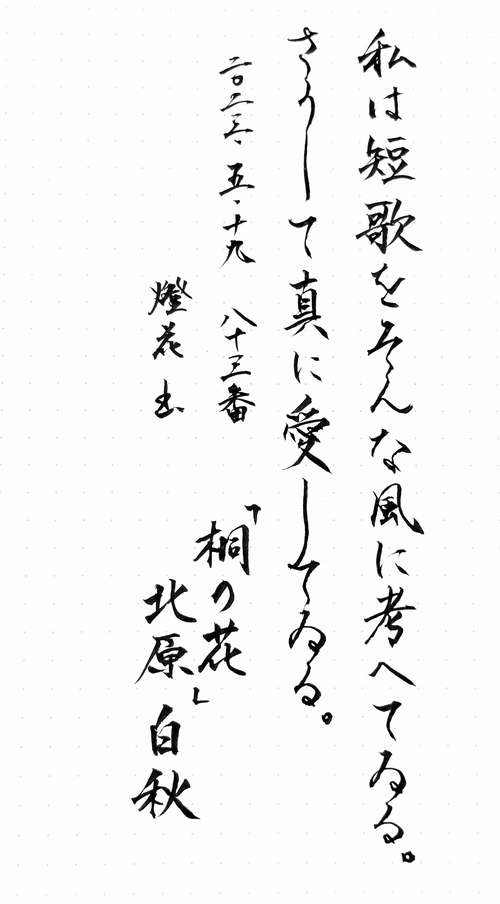 私は短歌をそんな風に考へてゐる。
さうして真に愛してゐる。
二〇二三、五、十九 八十三番
燈花
「桐の花」
北原白秋